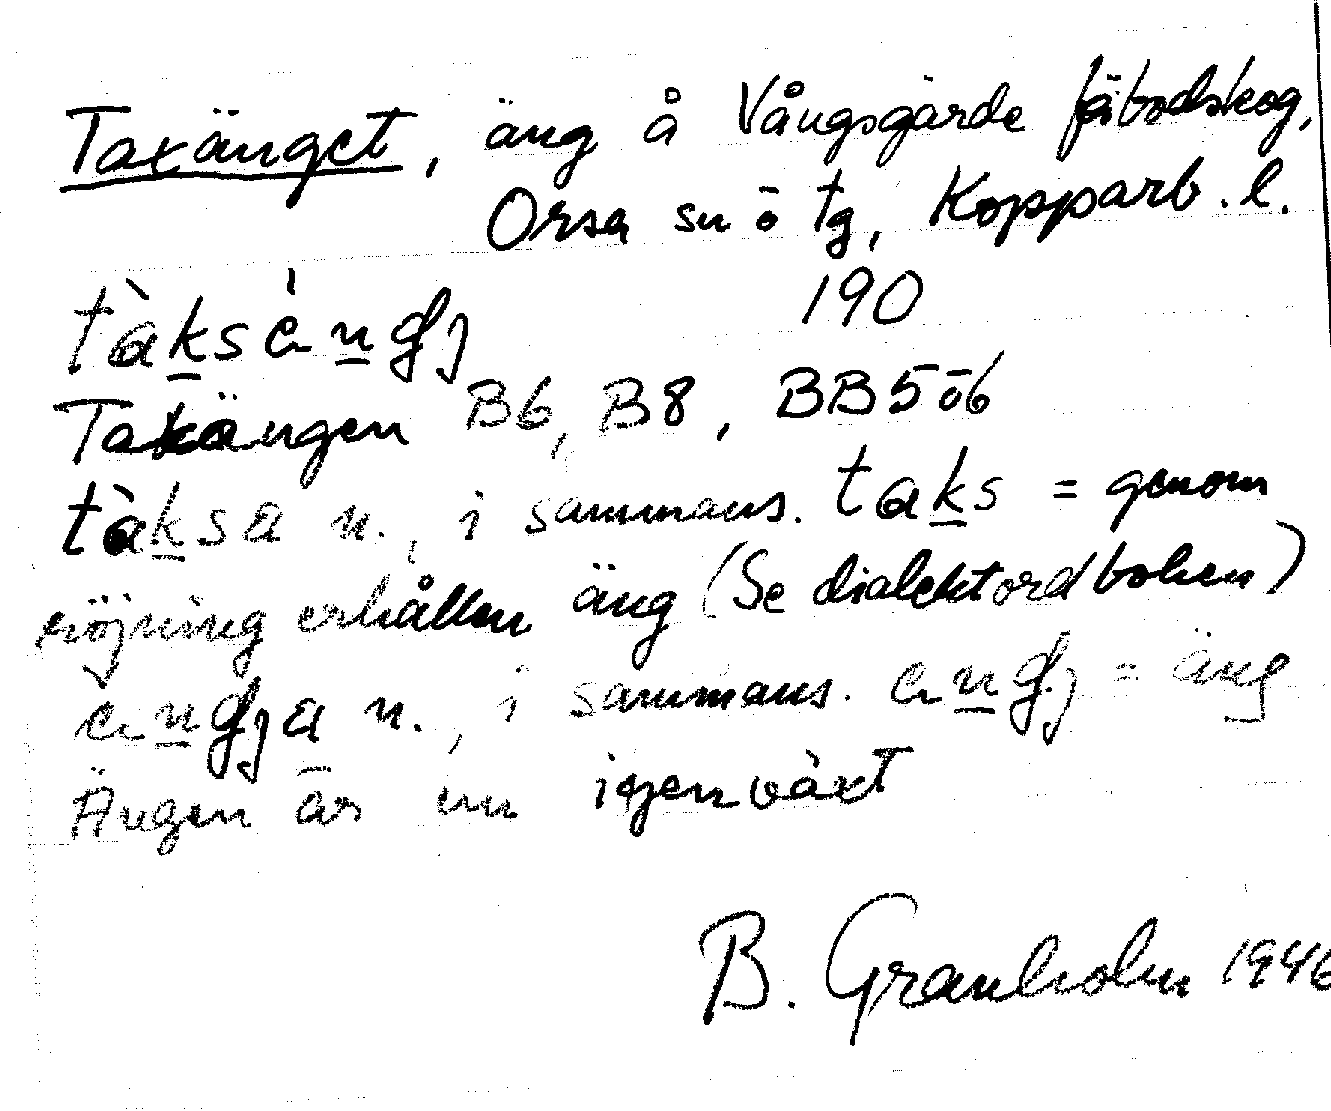 Taxänget, äng å Vångsgärde fäbodskog,
Orsa sn ō tg, Kopparb. l.
190
tàksèngj
Taxängen B6, B8, BB5ō6
tàksa n., i sammans. taks = genom
röjning erhållen äng (Se dialektordboken)
engja n., i sammans. engj = äng
Ängen är nu igenväxt
B. Granholm 1946